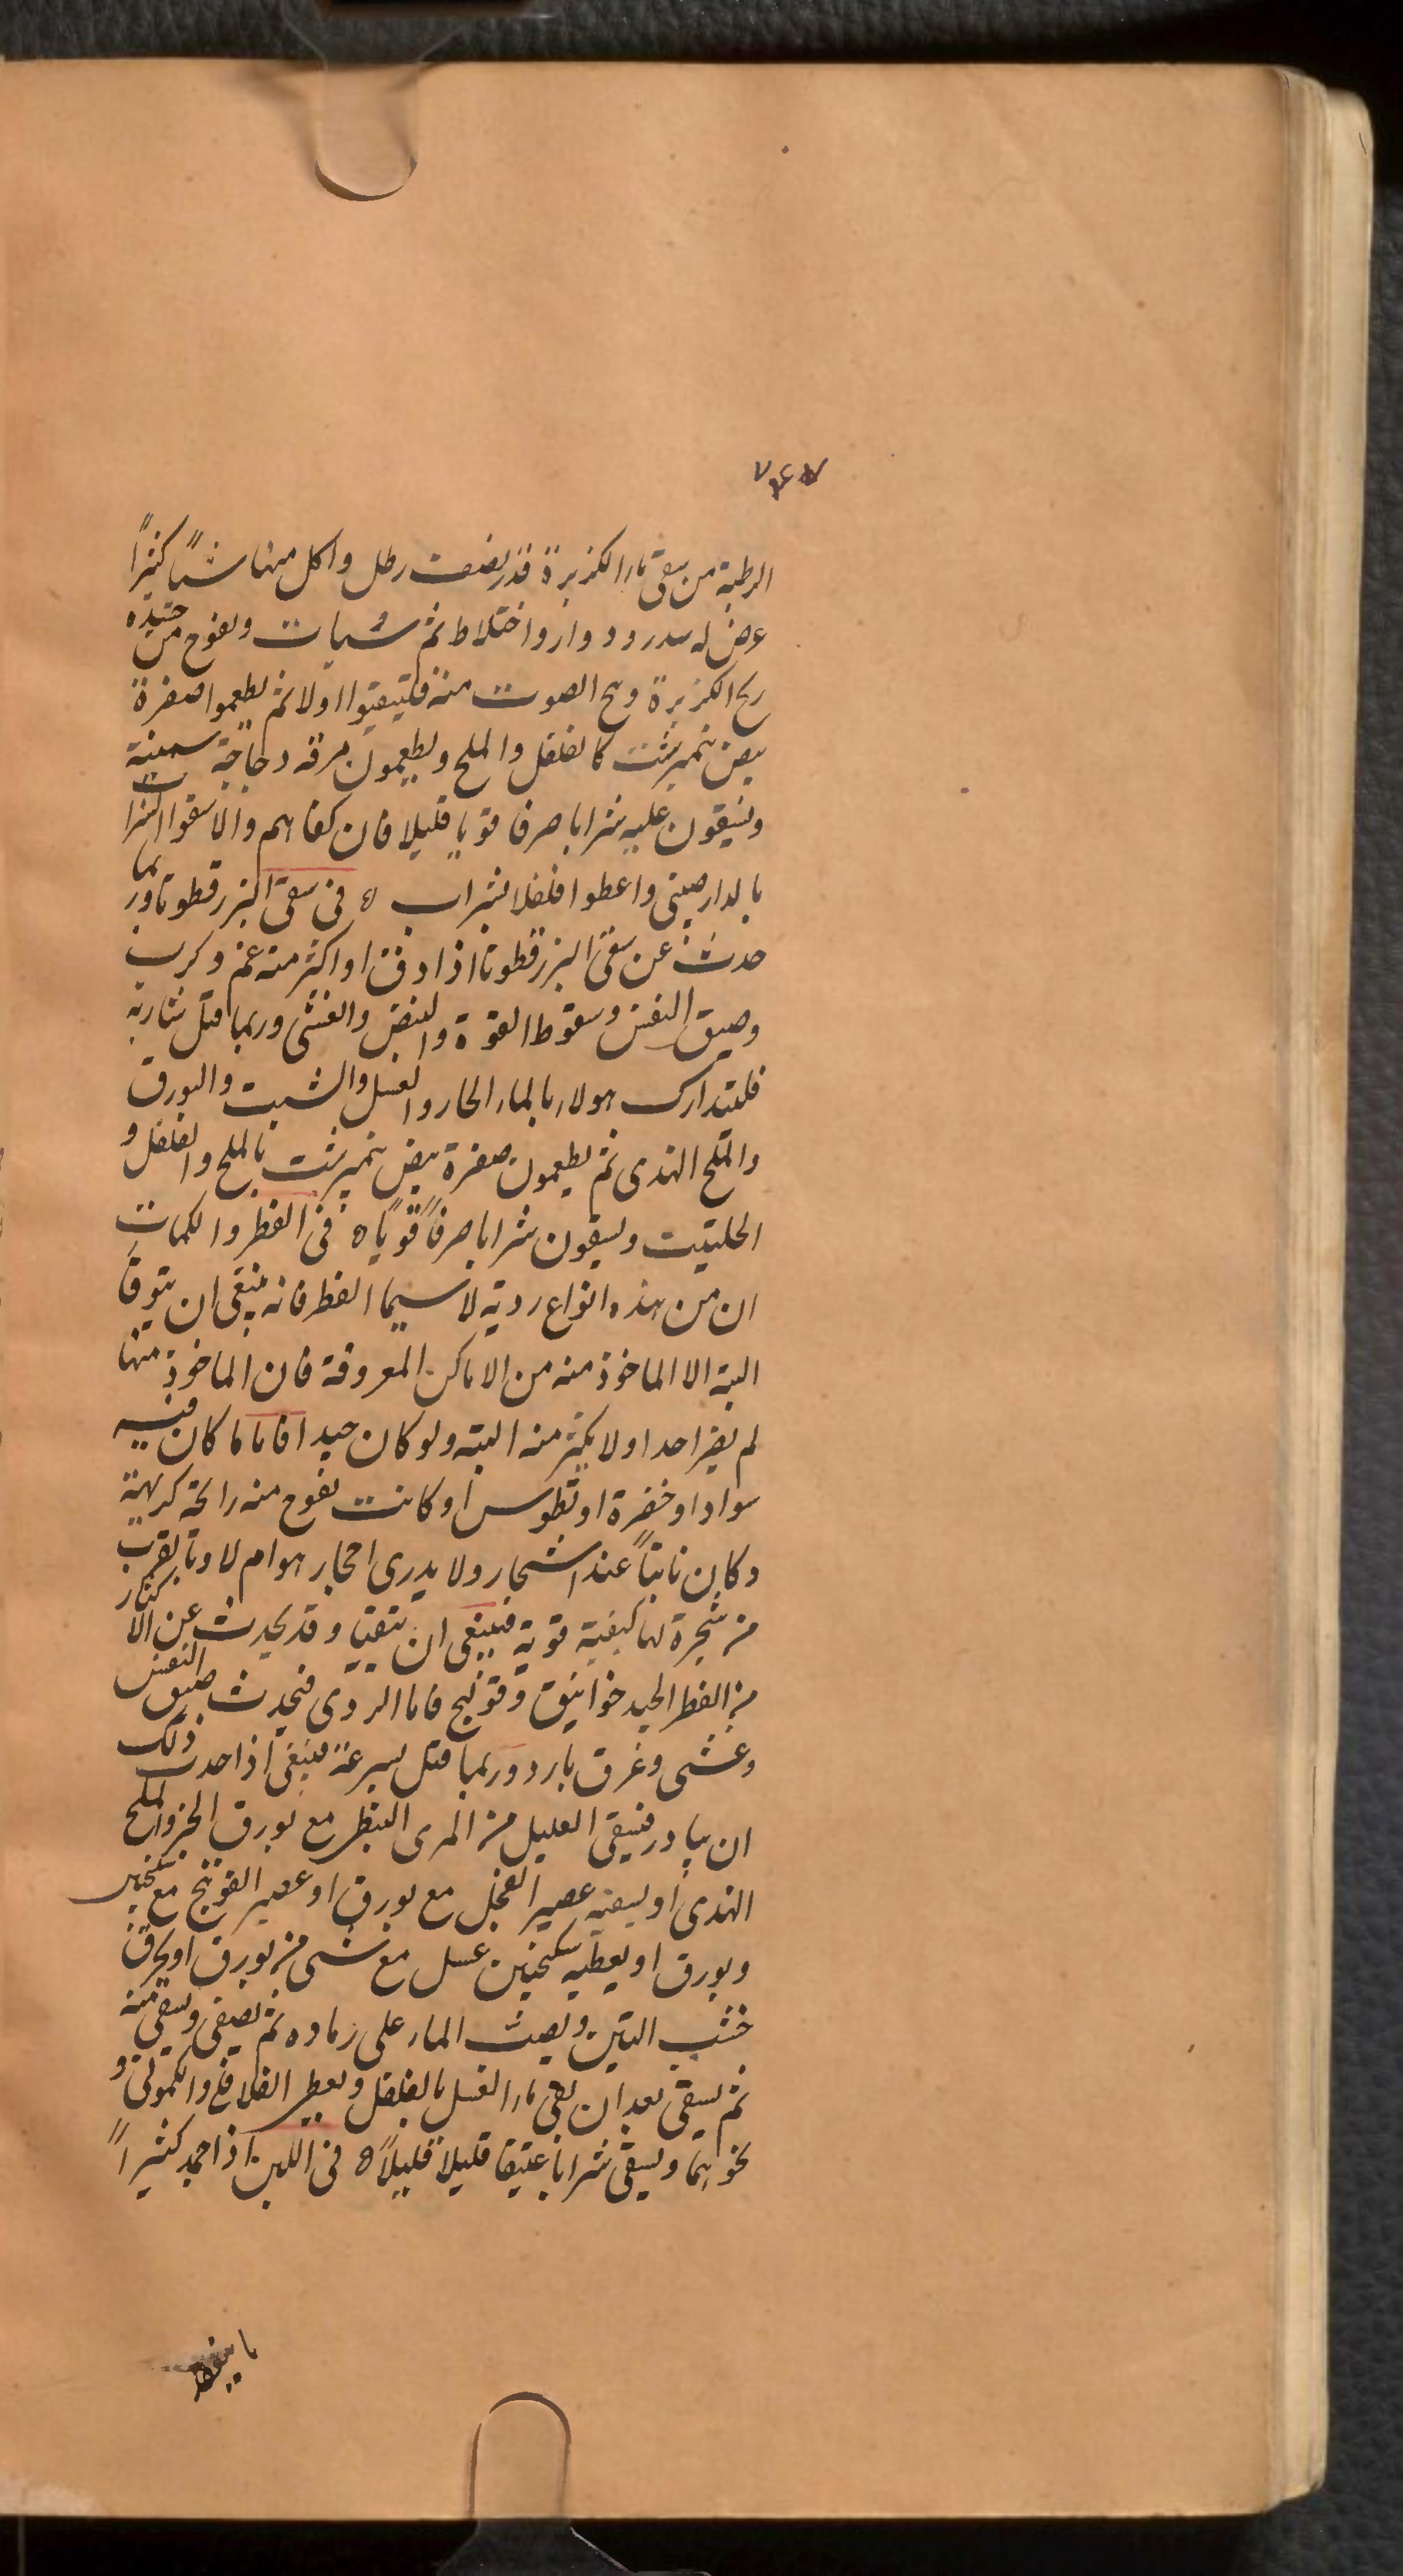 الرطبة من سقى ماء الكزبرة قدر نصف رطل واكل منها شيأً كثيراً
عرض له سدر ودوار واختلاط ثم سبات ويفوح من جسده
ريح الكزبرة وبح الصوت منه فليتقيؤا اولا ثم يطعموا صفرة
بيض نيمبرشت كالفلفل والملح ويطعمون مرقه دجاجة سمينة
ويسقون عليه شرابا صرفا قويا قليلا فان كفاهم والا سقوا الشراب
بالدارصينى واعطوا فلفلا بشراب ه فى سقى البزرقطونا وربما
حدث عن سقى البزرقطونا اذا دق او اكثر منه غم وكرب
وضيق النفس وسقوط القوة والنبض والغشى وربما قتل شاربه
فليتدارك هولاء بالماء الحار والعسل والشبت والبورق
والملح الهندى ثم يطعمون صفرة بيض نيمبرشت بالملح والفلفل و
الحلتيت ويسقون شرابا صرفاً قوياً ه فى الفطر والكمات
ان من هذه انواع ردية لا سيما الفطر فانه ينبغى ان يتوقا
البتة الا الماخوذ منه من الاماكن المعروفة فان الماخوذ منها
لم يضر احدا ولا يكثر منه البتة ولو كان جيدا فاما ما كان فيه
سوادا او خضرة او تطوس او كانت تفوح منه رائحة كريهة
وكان نابتاً عند اشجار ولا يدرى احجار هوام لا وبالقرب
من شجرة لها كيفية قوية فينبغى ان يتقيا وقد يحدث عن الاكثار
من الفطر الجيد خوانيق وقولنج فاما الردى فيحدث ضيق النفس
وغشى وعرق بارد وربما قتل بسرعة فينبغى اذا حدث ذلك
ان يبادر فيسقى العليل من المرى النبطى مع بورق الخبز والملح
الهندى او يسقيه عصير الفجل مع بورق او عصير الفوتنج مع سكنجبين
وبورق او يعطيه سكنجبين عسل مع شى من بورق او يحرق
خشب التين ويصب الماء على رماده ثم يصفى ويسقى منه
ثم يسقى بعد ان يقى ماء العسل بالفلفل ويعطى الفلافلى والكمونى و
نحوهما ويسقى شرابا عتيقا قليلا قليلاً ه فى اللبن اذا جمد كثيراً